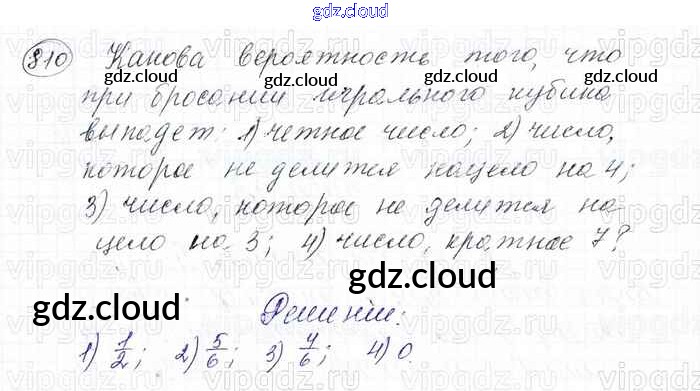 gdz.cloud
810 Какова вероятность того, что
gdz.cloud gdz.cloud gdz.cloud
при бросании игрального кубика
выпадет: 1) четное число; 2) число,
которое не делится нацело на 4;
3) число, которое не делится на-
цело на 3; 4) число, кратное 7?
gdz.cloud
gdz.cloud
Решение:
1) 1/2; 2) 5/6; 3) 4/6; 4) 0.